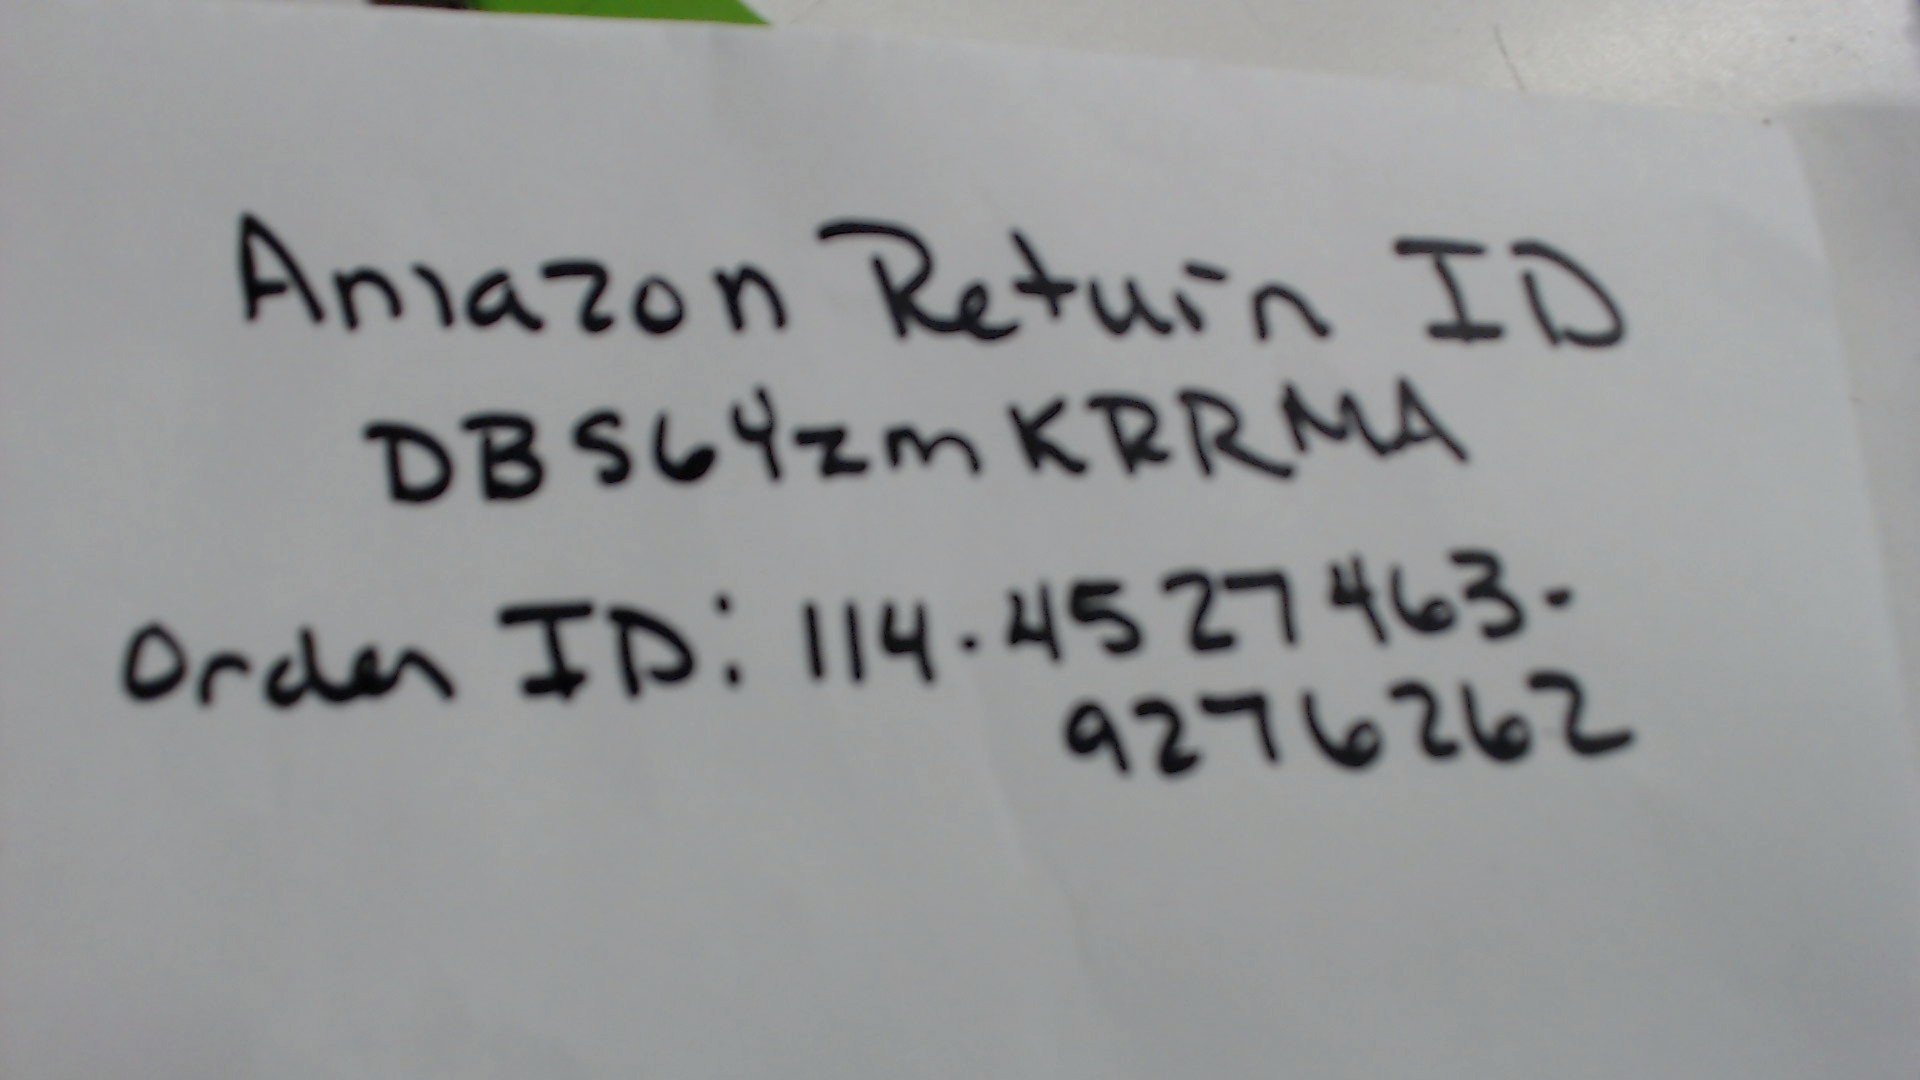 Amazon Return ID
DBS64zmKRRMA
Order ID: 114-4527463-
9276262